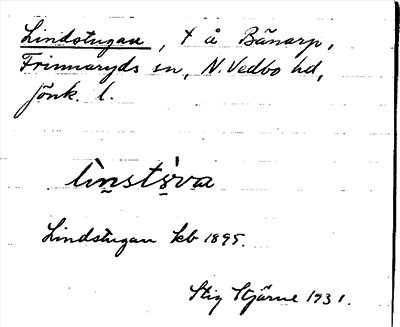 Lindstugan, t å Bänarp,
Frinnaryds sn, N. Vedbo hd,
Jönk. l.
lìnstö̀va
Lindstugan kb 1895.
Stig Stjärne 1931.